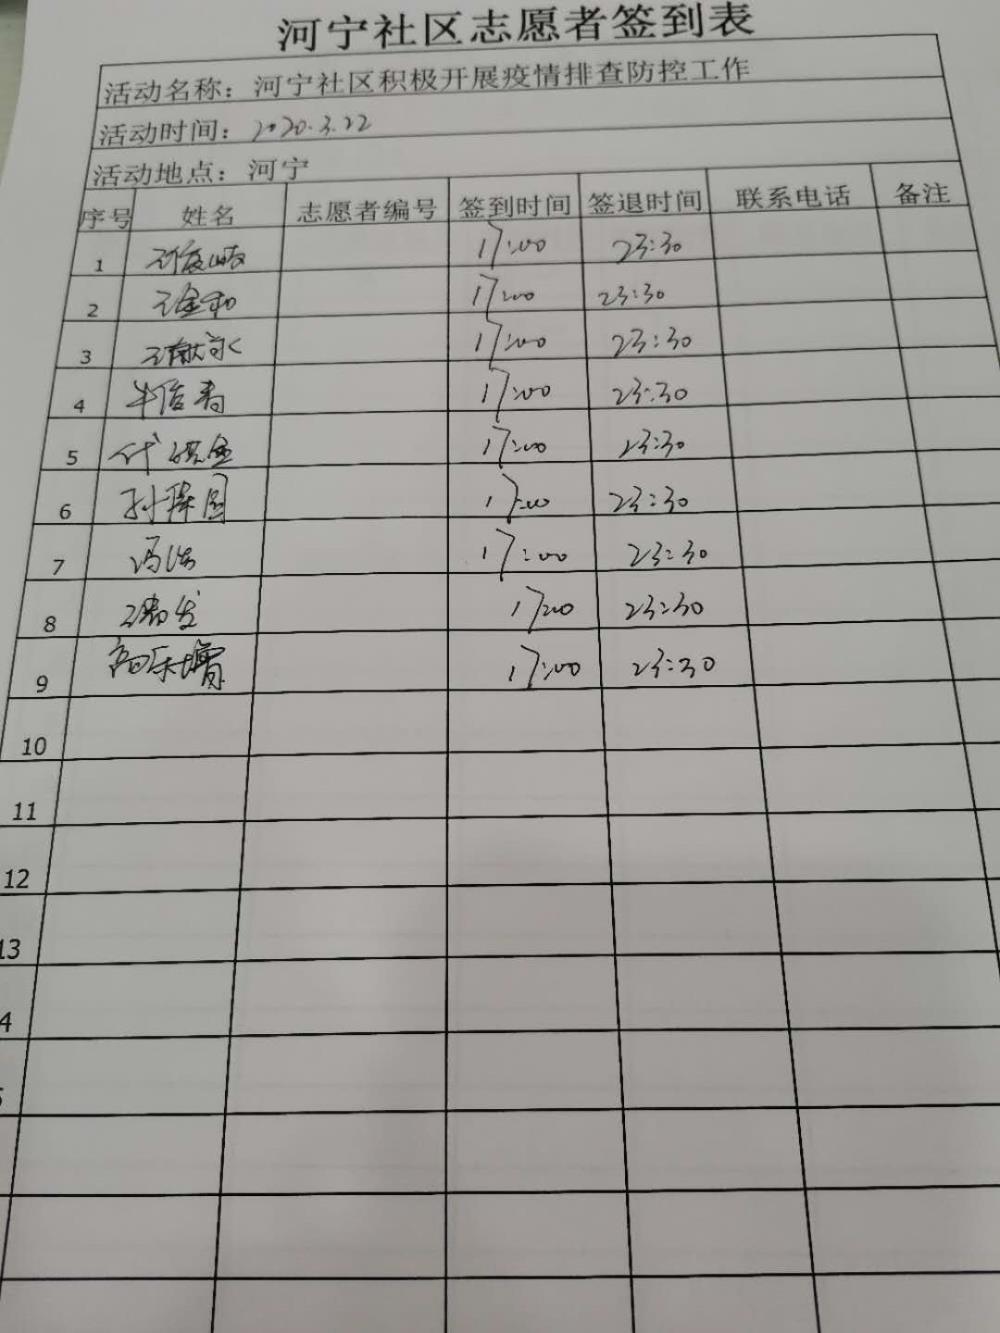 河宁社区志愿者签到表
活动名称：河宁社区积极开展疫情排查防控工作
活动时间：2020.3.22
活动地点：河宁
序号 姓名 志愿者编号 签到时间 签退时间 联系电话 备注
1 17:00 23:30
2 17:00 23:30
3 17:00 23:30
4 牛俊青 17:00 23:30
5 17:00 23:30
6 17:00 23:30
7 冯浩 17:00 23:30
8 17:00 23:30
9 17:00 23:30
10
11
12
13
4